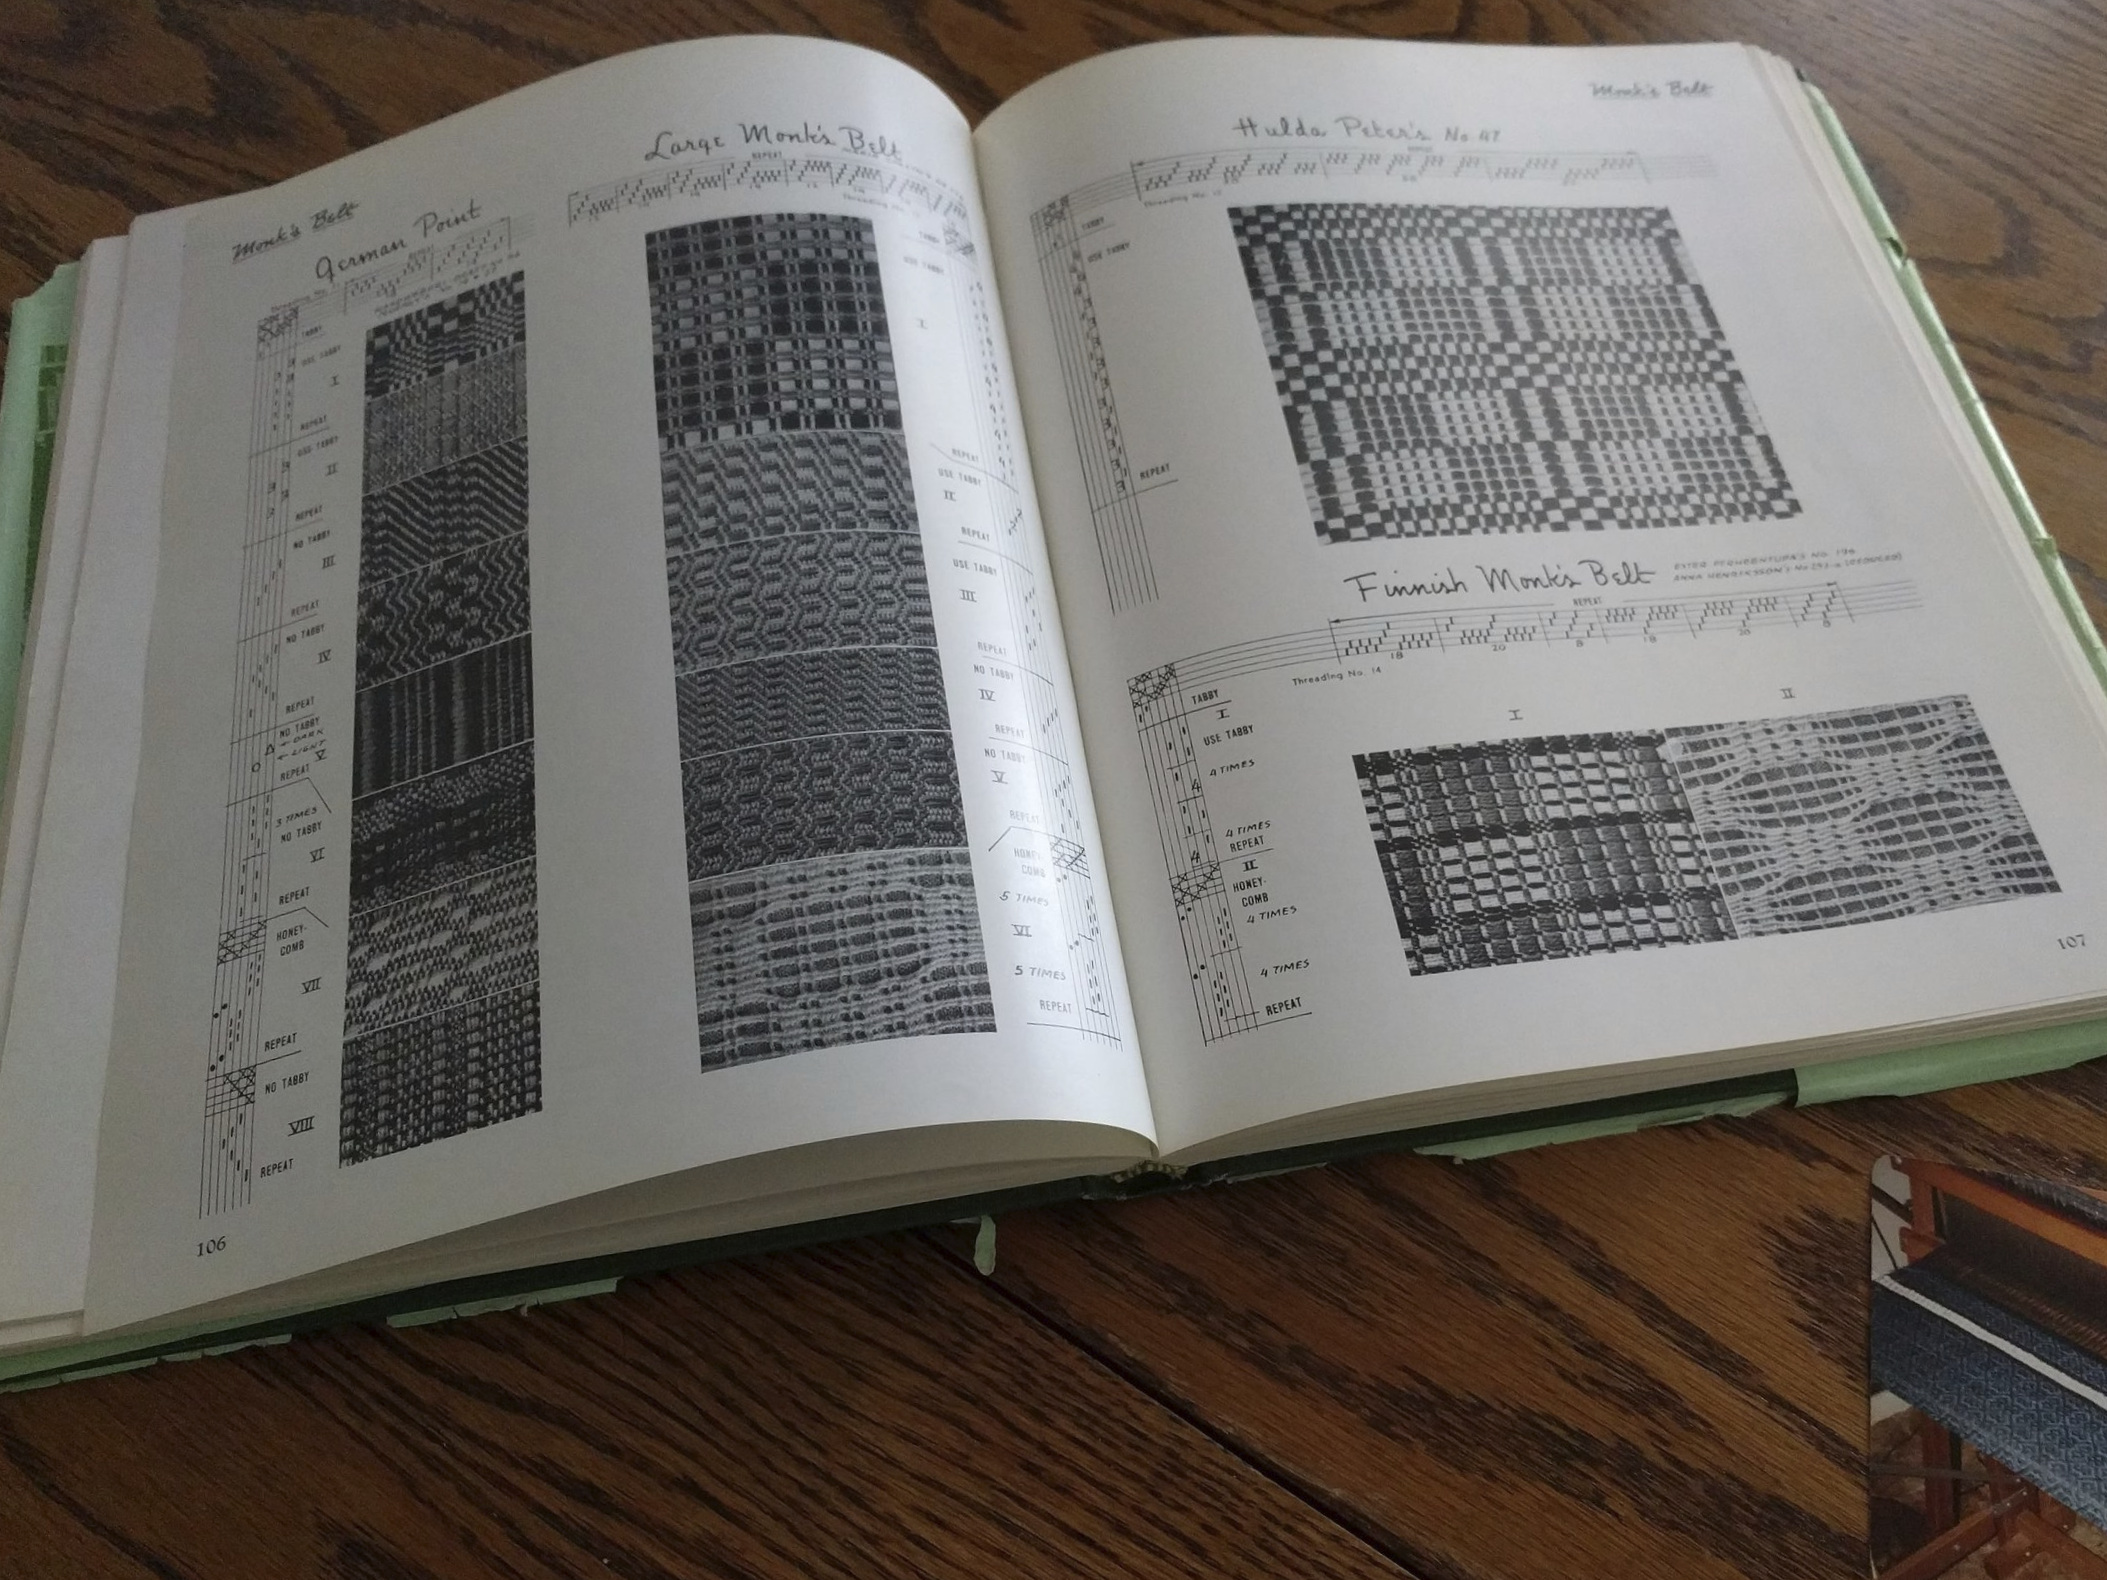 Monk's Belt
German Point
Threading No.
TABBY
USE TABBY
I
REPEAT
USE TABBY
II
REPEAT
NO TABBY
III
REPEAT
NO TABBY
IV
REPEAT
NO TABBY
← DARK
← LIGHT
V
REPEAT
3 TIMES
NO TABBY
VI
REPEAT
HONEY-
COMB
VII
REPEAT
NO TABBY
VIII
REPEAT
106
Large Monk's Belt
REPEAT
Threading No.
TABBY
USE TABBY
I
REPEAT
USE TABBY
II
REPEAT
USE TABBY
III
REPEAT
NO TABBY
IV
REPEAT
NO TABBY
V
REPEAT
HONEY-
COMB
5 TIMES
VI
5 TIMES
REPEAT
Monk's Belt
Hulda Peter's No 47
Threading No. 13
TABBY
USE TABBY
REPEAT
Finnish Monk's Belt
ANNA HENRIKSSON'S No (REDUCED)
REPEAT
18 20 8 18 20 8
Threading No. 14
TABBY
I
USE TABBY
4 TIMES
4
4 TIMES
4
REPEAT
II
HONEY-
COMB
4 TIMES
4 TIMES
REPEAT
I
II
107